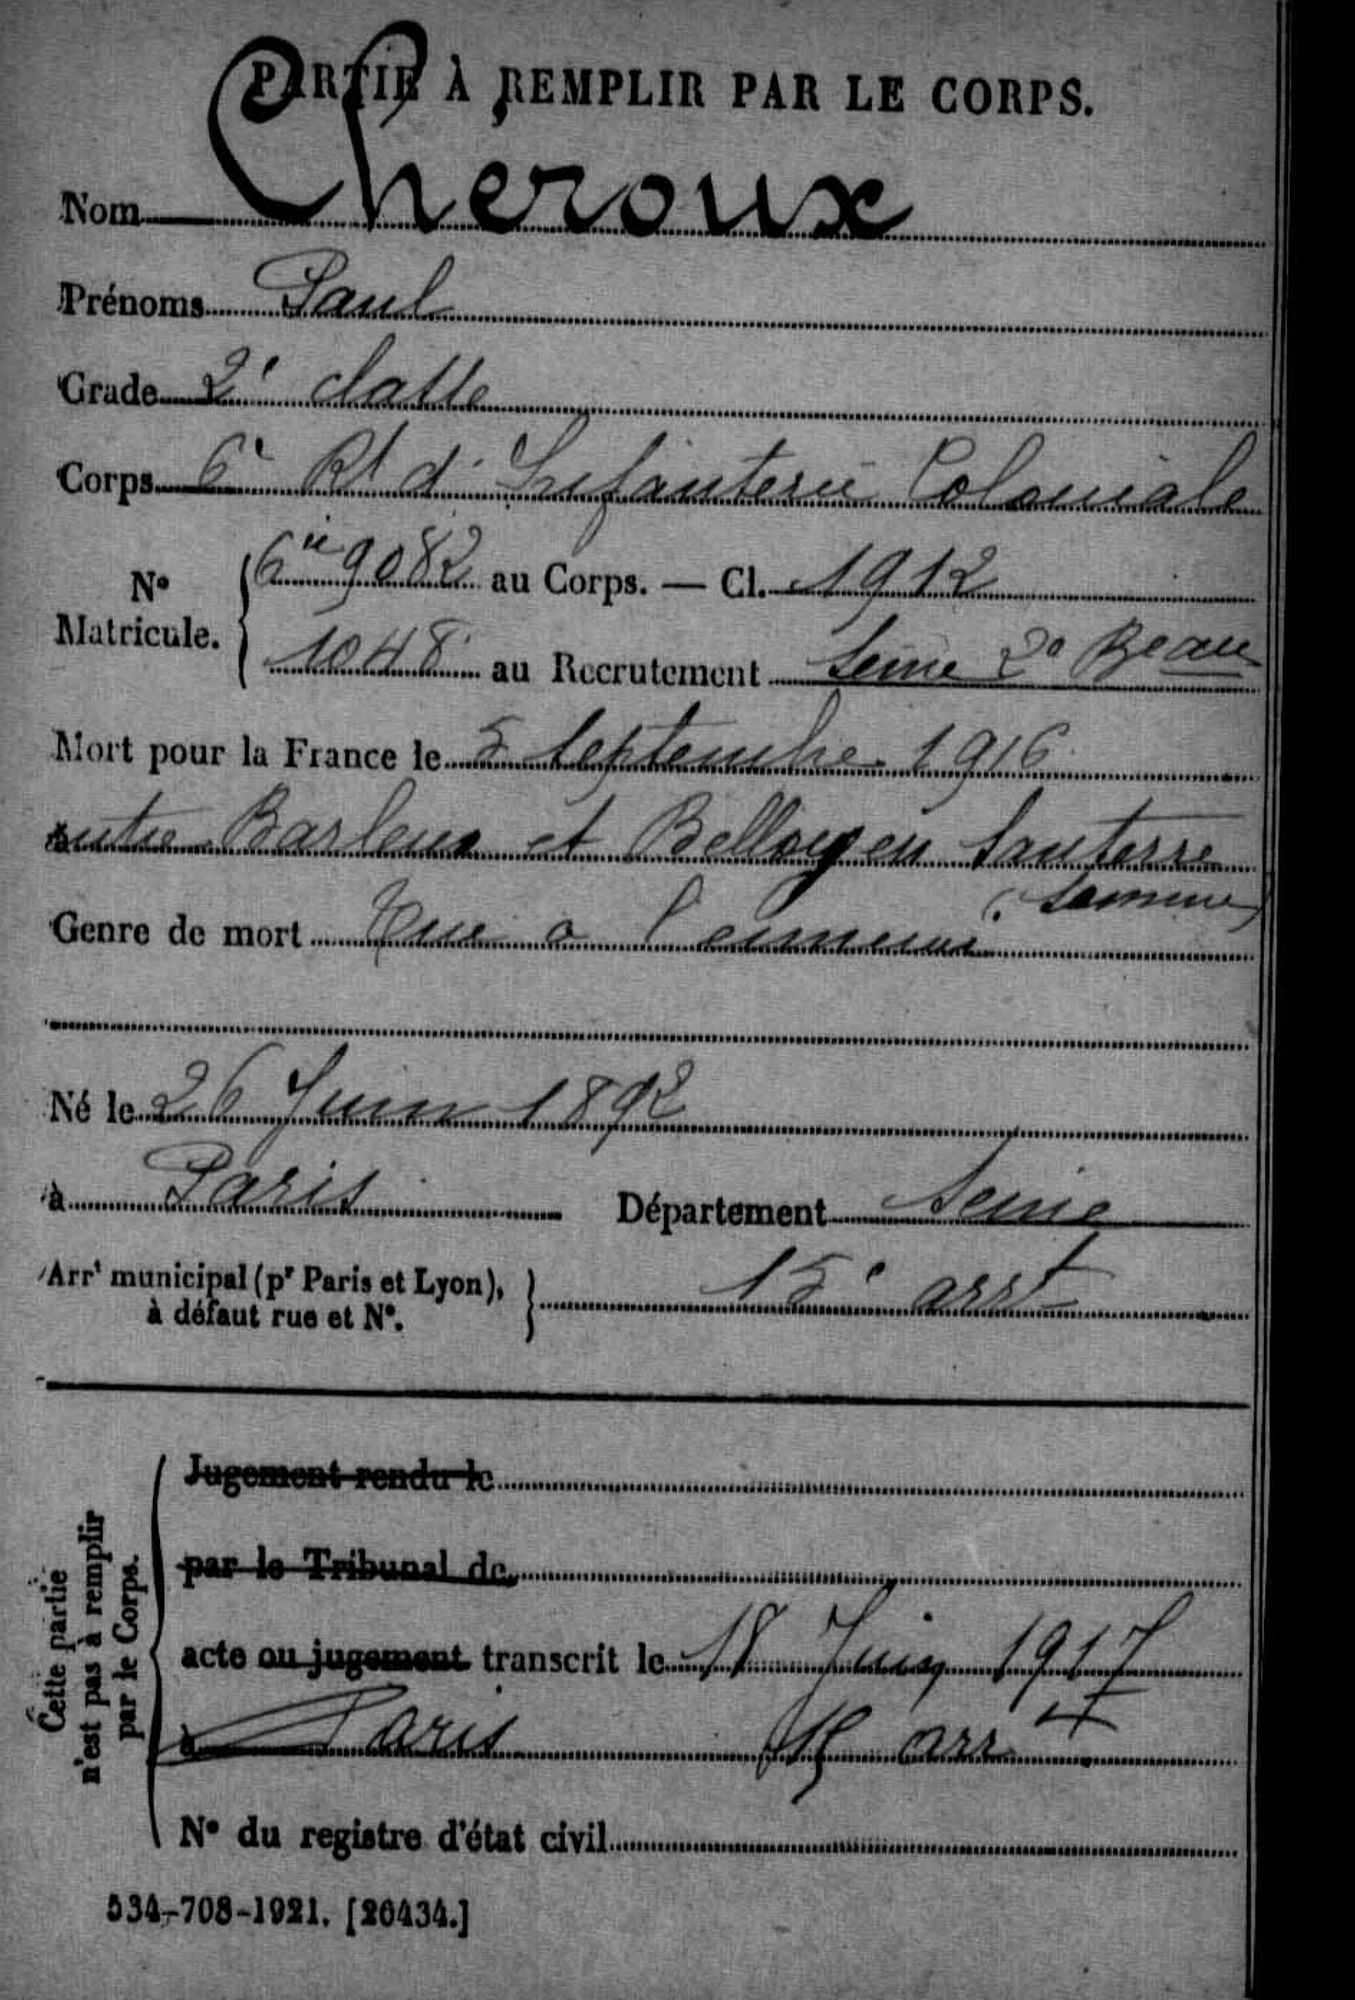 PARTIE À REMPLIR PAR LE CORPS.
Nom Cheroux
Prénoms Paul
Grade 2e classe
Corps 6e Rt d'Infanterie Coloniale
No Matricule. 6ie 9082 au Corps. — Cl. 1912
1048 au Recrutement Seine 2o Beau
Mort pour la France le 5 Septembre 1916
entre Barleux et Belloy en Santerre
(Somme)
Genre de mort Tué à l'ennemi
Né le 26 Juin 1892
à Paris Département Seine
Arrt municipal (pr Paris et Lyon), à défaut rue et No. 15e arrt
Cette partie n'est pas à remplir par le Corps.
Jugement rendu le
par le Tribunal de
acte ou jugement transcrit le 18 Juin 1917
à Paris 15 arrt
No du registre d'état civil
534-708-1921. [26434.]